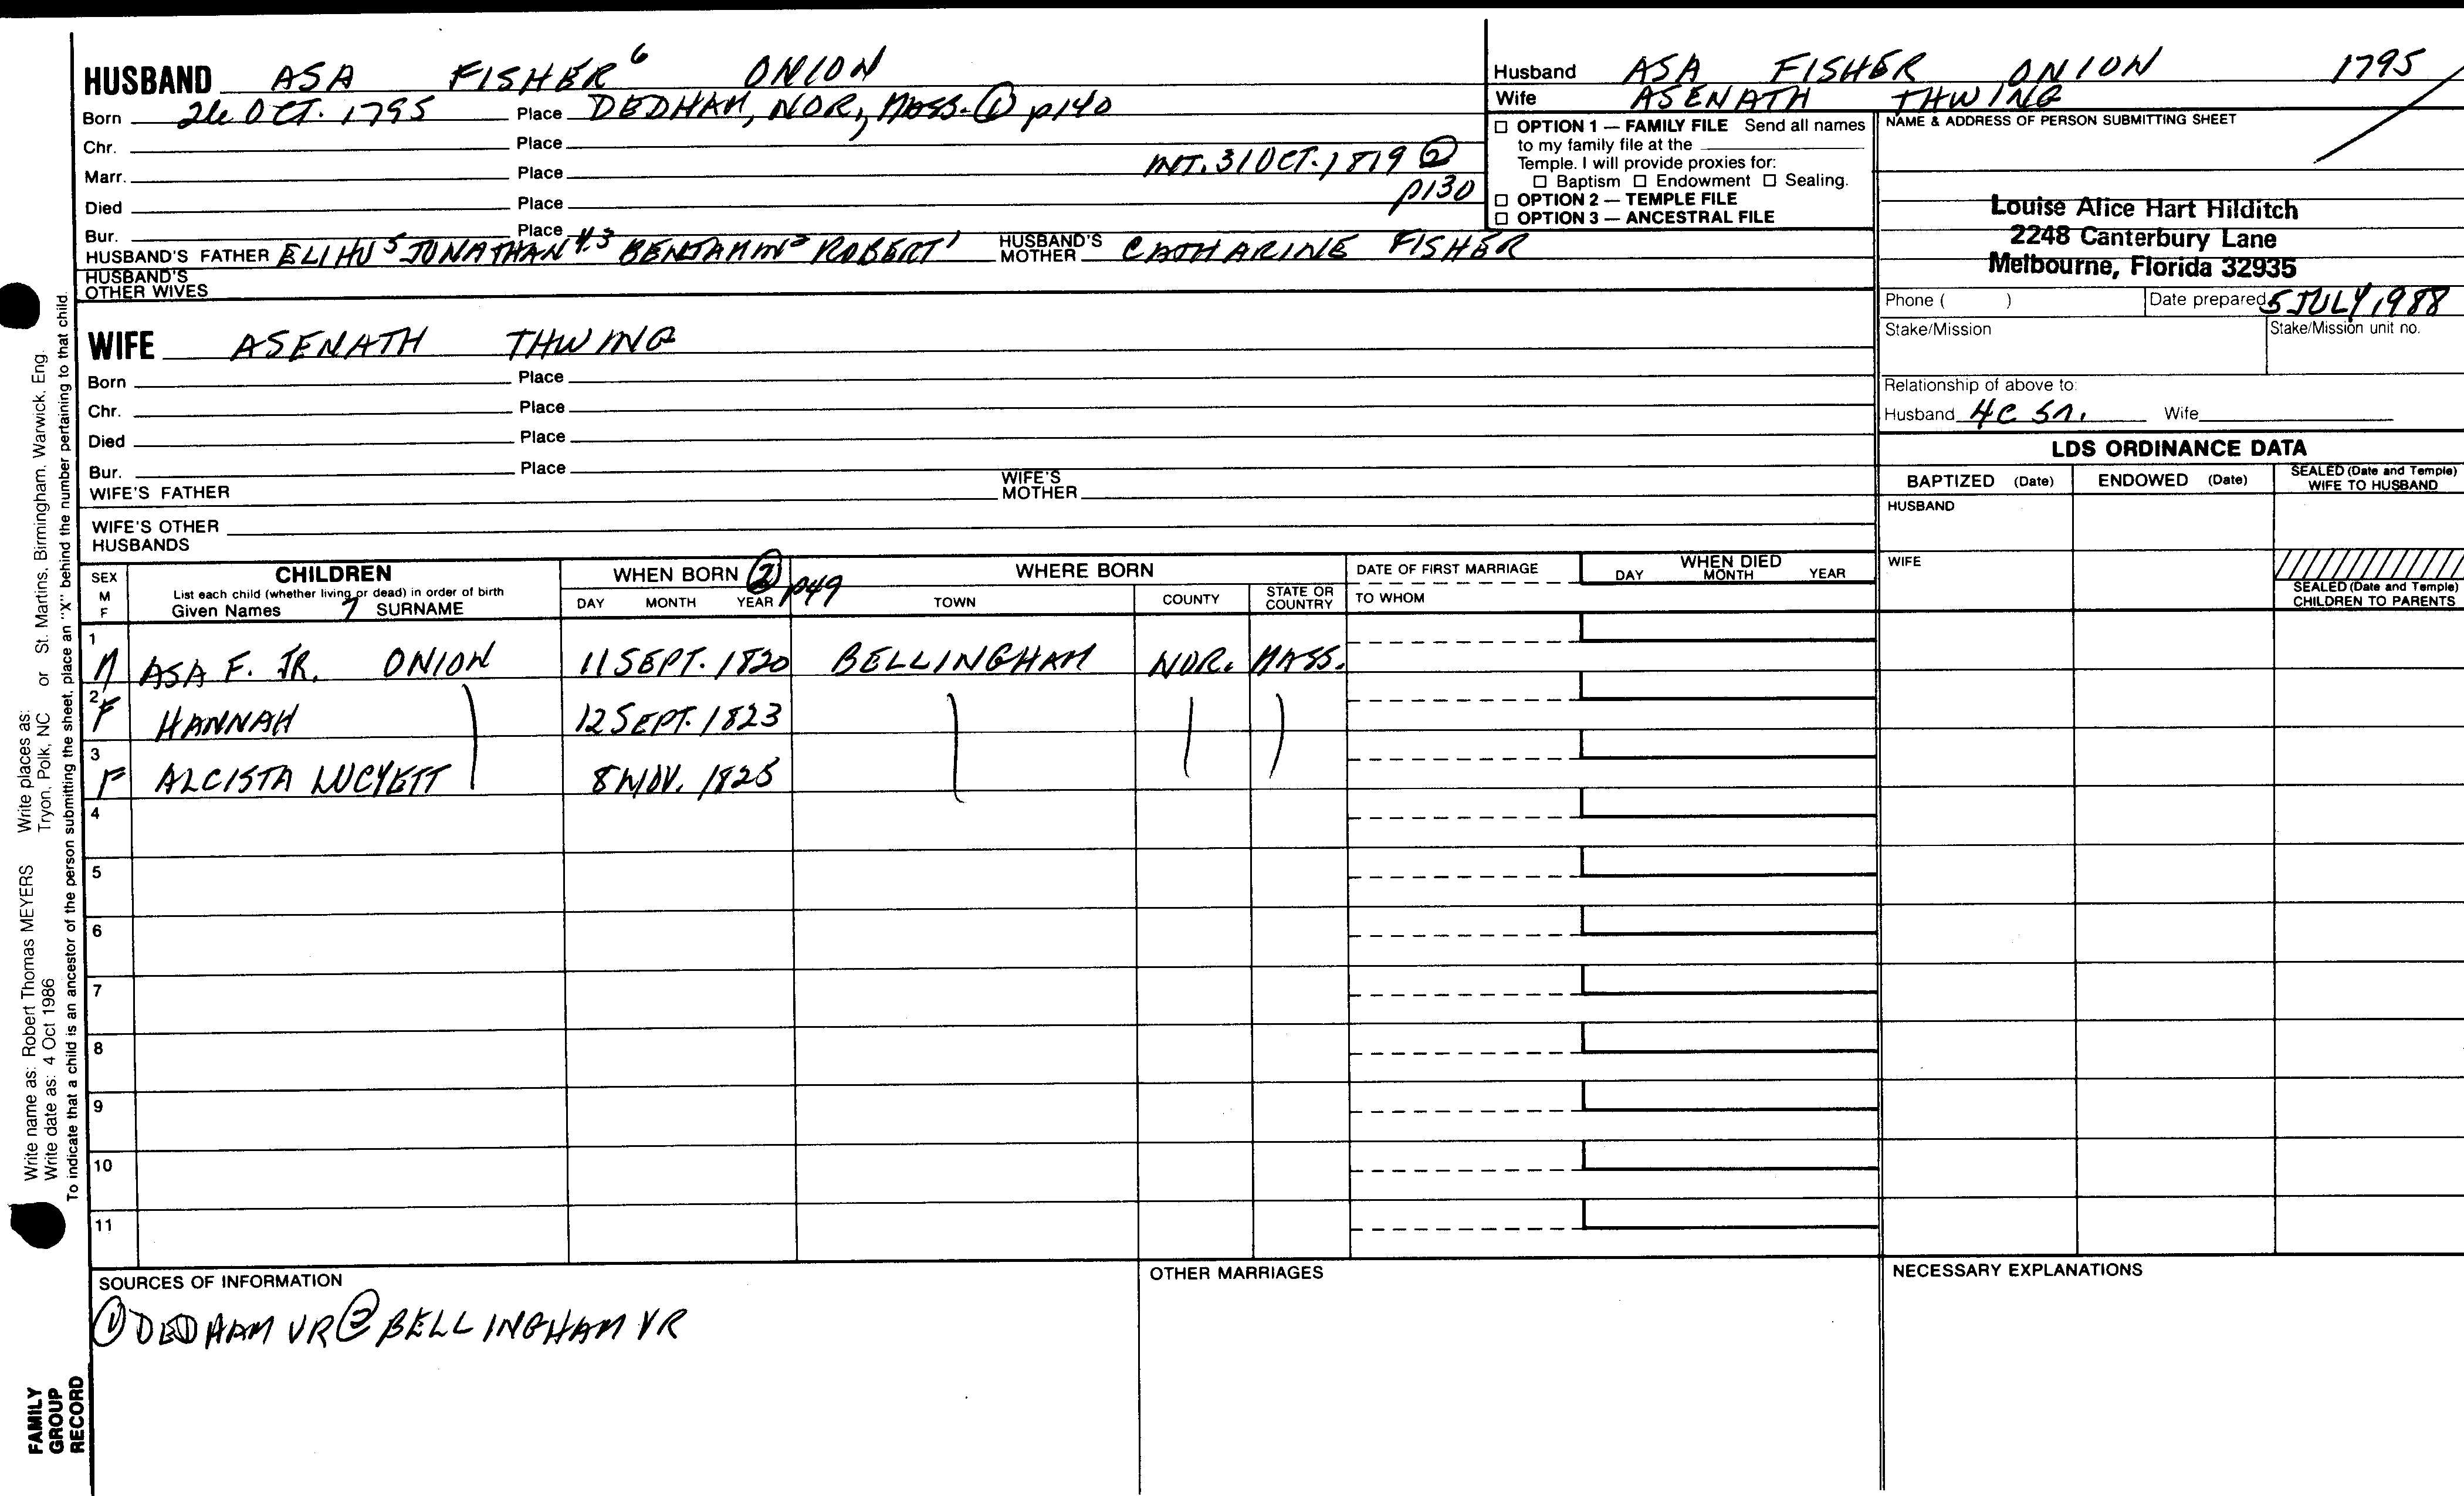 HUSBAND ASA FISHER 6 ONION
Born 26 OCT. 1795 Place DEDHAM, NOR, MASS. ① p140
Chr. Place
Marr. Place INT. 31 OCT. 1819 ②
p130
Died Place
Bur. Place
HUSBAND'S FATHER ELIHU 5 JONATHAN 4,3 BENJAMIN 2 ROBERT 1 HUSBAND'S MOTHER CATHARINE FISHER
HUSBAND'S OTHER WIVES
WIFE ASENATH THWING
Born Place
Chr. Place
Died Place
Bur. Place
WIFE'S FATHER WIFE'S MOTHER
WIFE'S OTHER HUSBANDS
Husband ASA FISHER ONION 1795
Wife ASENATH THWING
□ OPTION 1 — FAMILY FILE Send all names
to my family file at the
Temple. I will provide proxies for:
□ Baptism □ Endowment □ Sealing.
□ OPTION 2 — TEMPLE FILE
□ OPTION 3 — ANCESTRAL FILE
NAME & ADDRESS OF PERSON SUBMITTING SHEET
Louise Alice Hart Hilditch
2248 Canterbury Lane
Melbourne, Florida 32935
Phone ( ) Date prepared 5 JULY 1988
Stake/Mission Stake/Mission unit no.
Relationship of above to:
Husband 4C 5r. Wife
LDS ORDINANCE DATA
BAPTIZED (Date) ENDOWED (Date) SEALED (Date and Temple) WIFE TO HUSBAND
HUSBAND
WIFE
SEALED (Date and Temple) CHILDREN TO PARENTS
SEX M F
CHILDREN
List each child (whether living or dead) in order of birth
Given Names 7 SURNAME
WHEN BORN ② p49
DAY MONTH YEAR
WHERE BORN
TOWN COUNTY STATE OR COUNTRY
DATE OF FIRST MARRIAGE
TO WHOM
WHEN DIED
DAY MONTH YEAR
1 M ASA F. JR. ONION 11 SEPT. 1820 BELLINGHAM NOR. MASS.
2 F HANNAH 12 SEPT. 1823
3 F ALCISTA LUCYETT 8 NOV. 1825
4
5
6
7
8
9
10
11
SOURCES OF INFORMATION
① DEDHAM VR ② BELLINGHAM VR
OTHER MARRIAGES
NECESSARY EXPLANATIONS
Write name as: Robert Thomas MEYERS Write places as:
Write date as: 4 Oct 1986 Tryon, Polk, NC or St. Martins, Birmingham, Warwick, Eng.
To indicate that a child is an ancestor of the person submitting the sheet, place an "X" behind the number pertaining to that child.
FAMILY
GROUP
RECORD